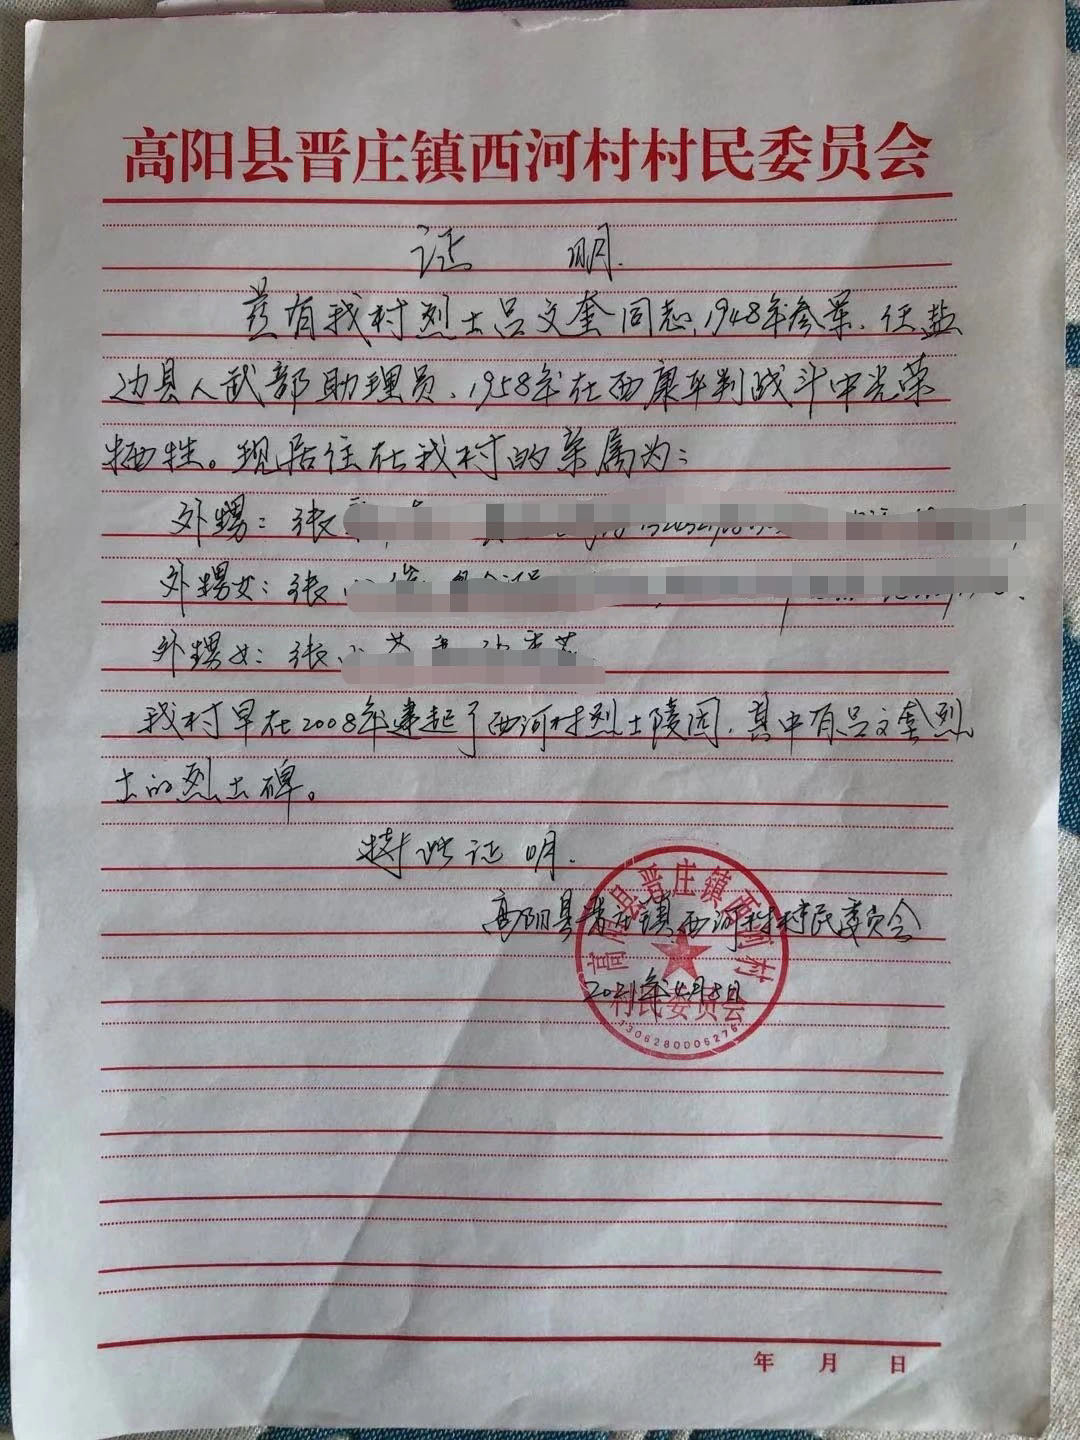 高阳县晋庄镇西河村村民委员会
证 明.
兹有我村烈士吕文奎同志,1948年参军、任盐
边县人武部助理员、1958年在西康平判战斗中光荣
牺牲。现居住在我村的亲属为:
外甥:张
外甥女:张
外甥女:张小
我村早在2008年建起了西河村烈士陵园,其中有吕文奎烈
士的烈士碑。
特此证明.
高阳县晋庄镇西河村村民委员会
2021年4月8日
高阳县晋庄镇西河村
村民委员会
1306280006276
年 月 日